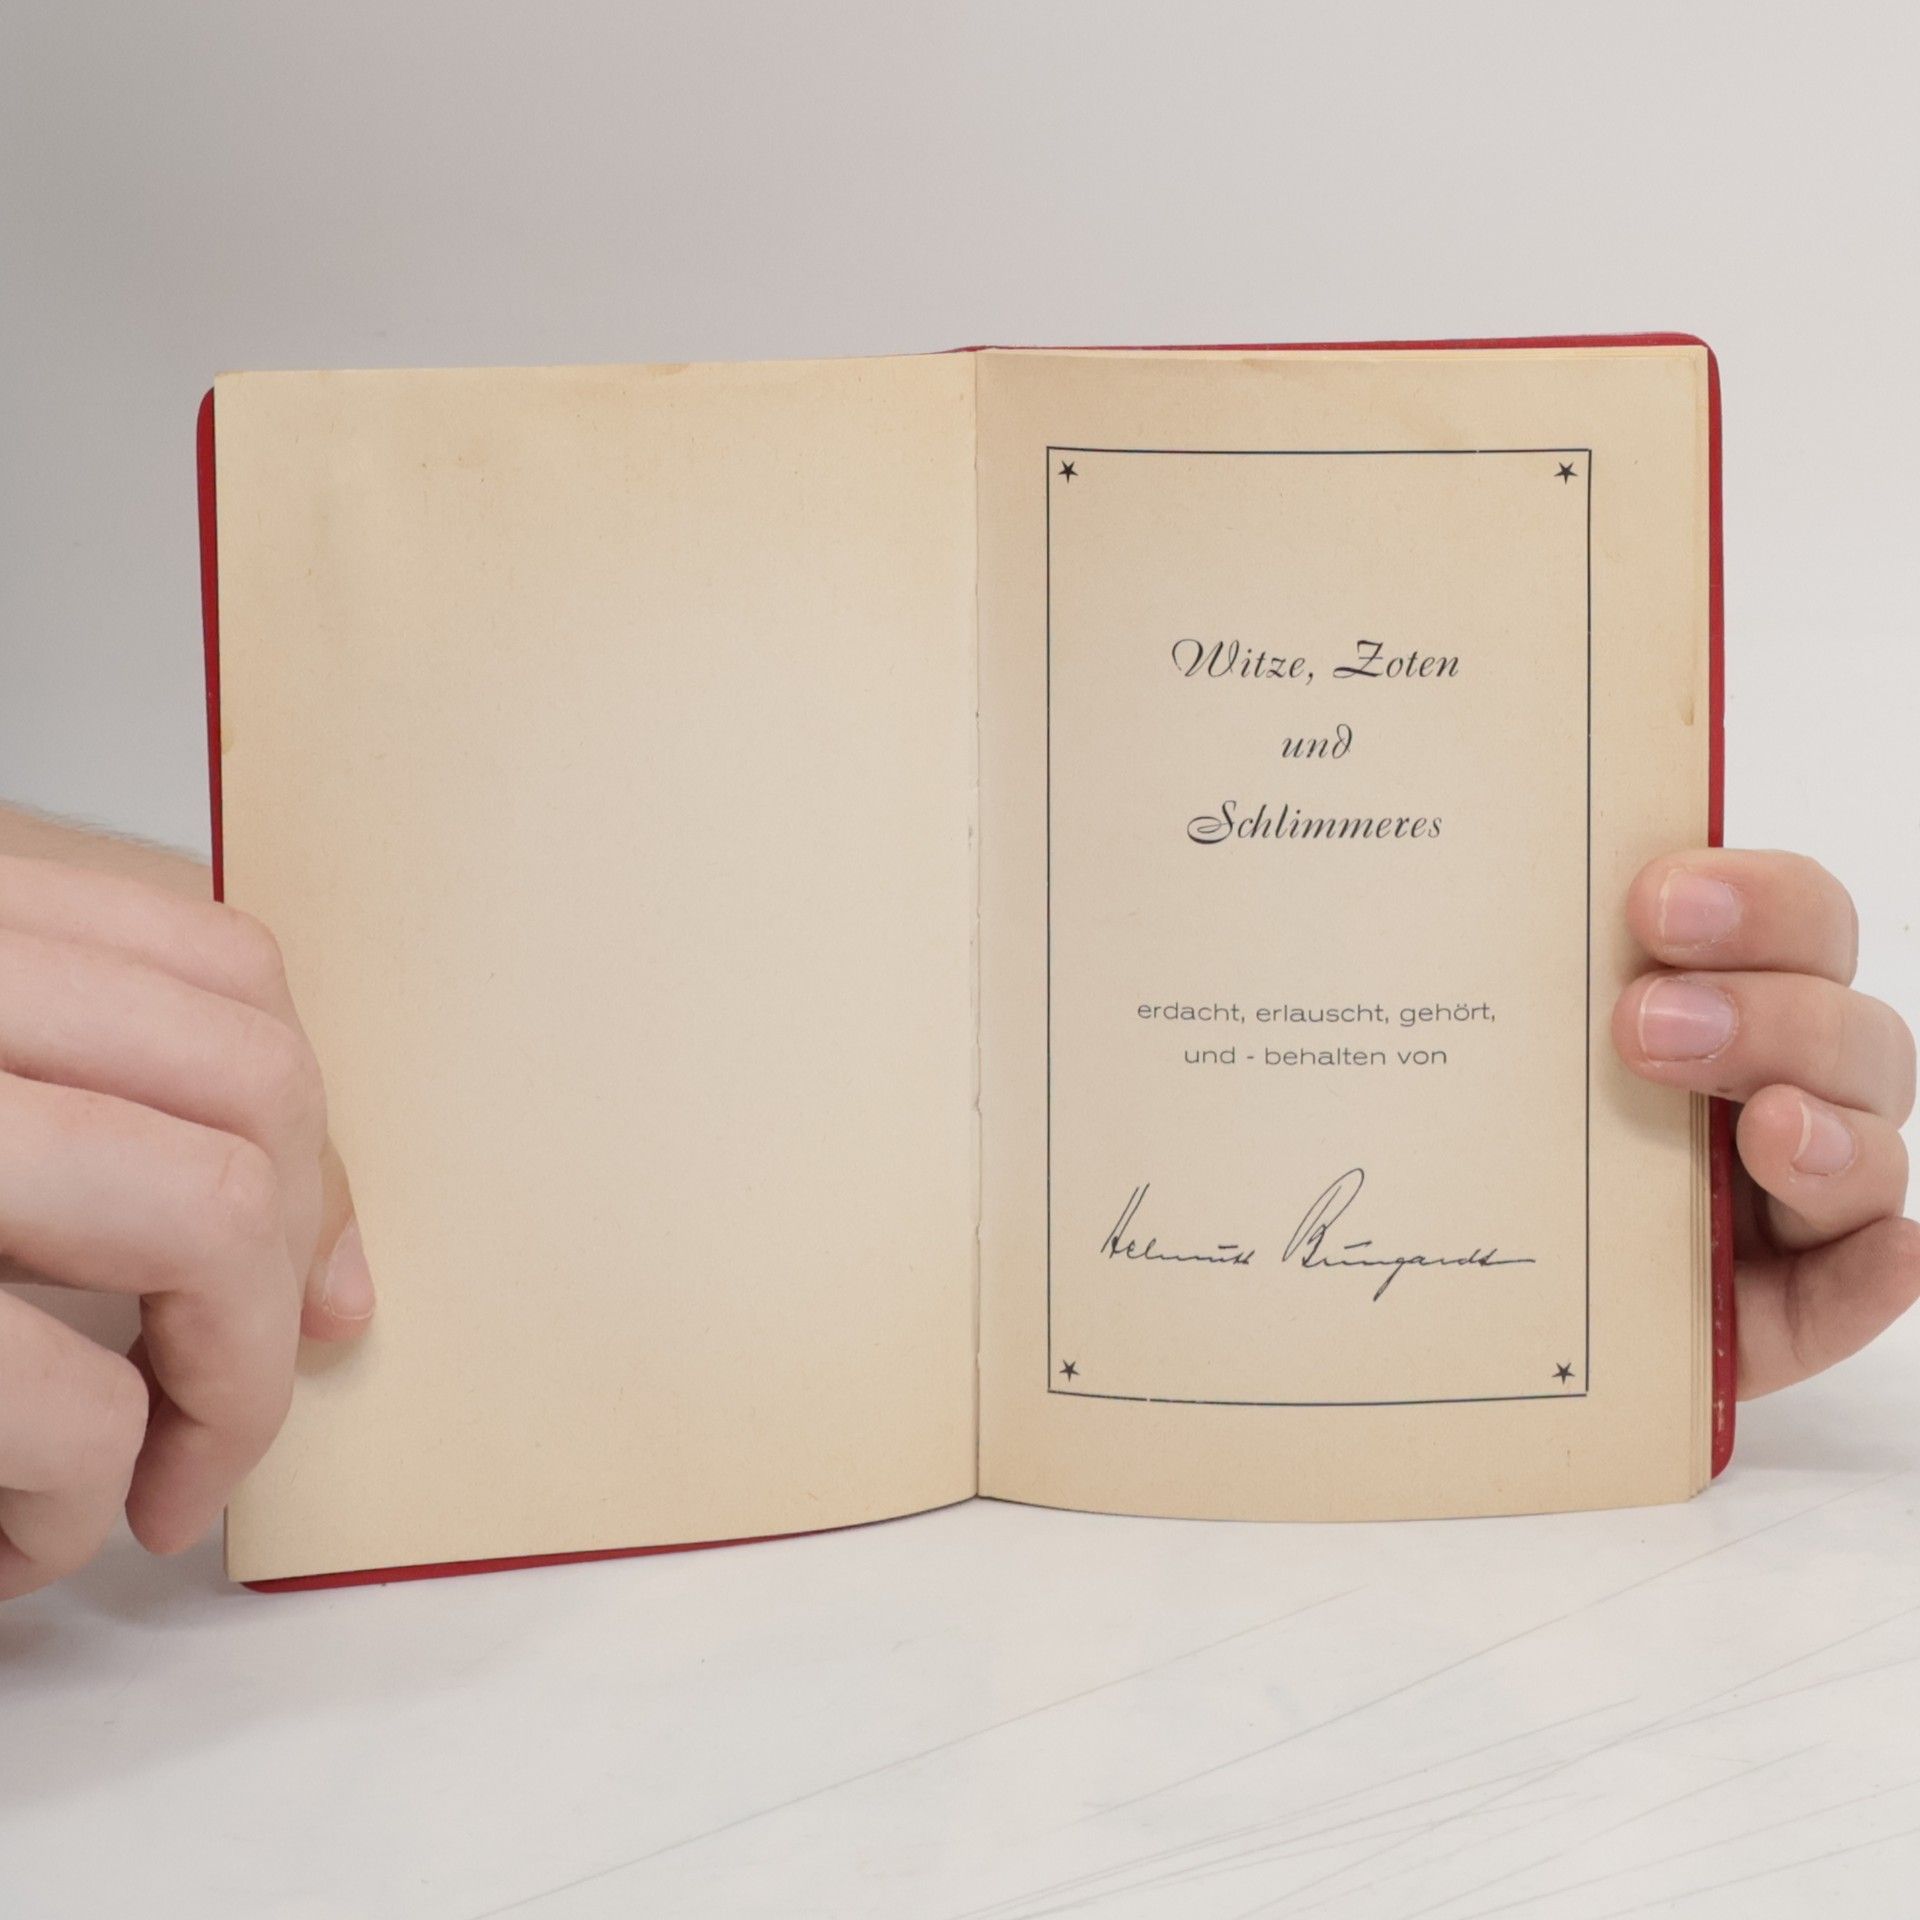 Witze, Zoten
und
Schlimmeres
erdacht, erlauscht, gehört,
und - behalten von
Helmuth Bungardt